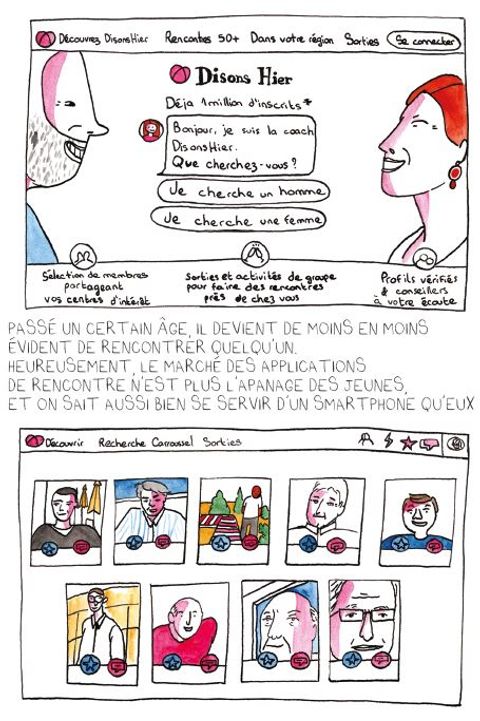 Découvrez DisonsHier Rencontres 50+ Dans votre région Sorties Se connecter
Disons Hier
Déjà 1 million d'inscrits*
Bonjour, je suis la coach
DisonsHier.
Que cherchez-vous ?
Je cherche un homme
Je cherche une femme
Sélection de membres
partageant
vos centres d'intérêt
Sorties et activités de groupe
pour faire des rencontres
près de chez vous
Profils vérifiés
& conseillers
à votre écoute
PASSÉ UN CERTAIN ÂGE, IL DEVIENT DE MOINS EN MOINS
ÉVIDENT DE RENCONTRER QUELQU'UN.
HEUREUSEMENT, LE MARCHÉ DES APPLICATIONS
DE RENCONTRE N'EST PLUS L'APANAGE DES JEUNES,
ET ON SAIT AUSSI BIEN SE SERVIR D'UN SMARTPHONE QU'EUX
Découvrir Recherche Carroussel Sorties